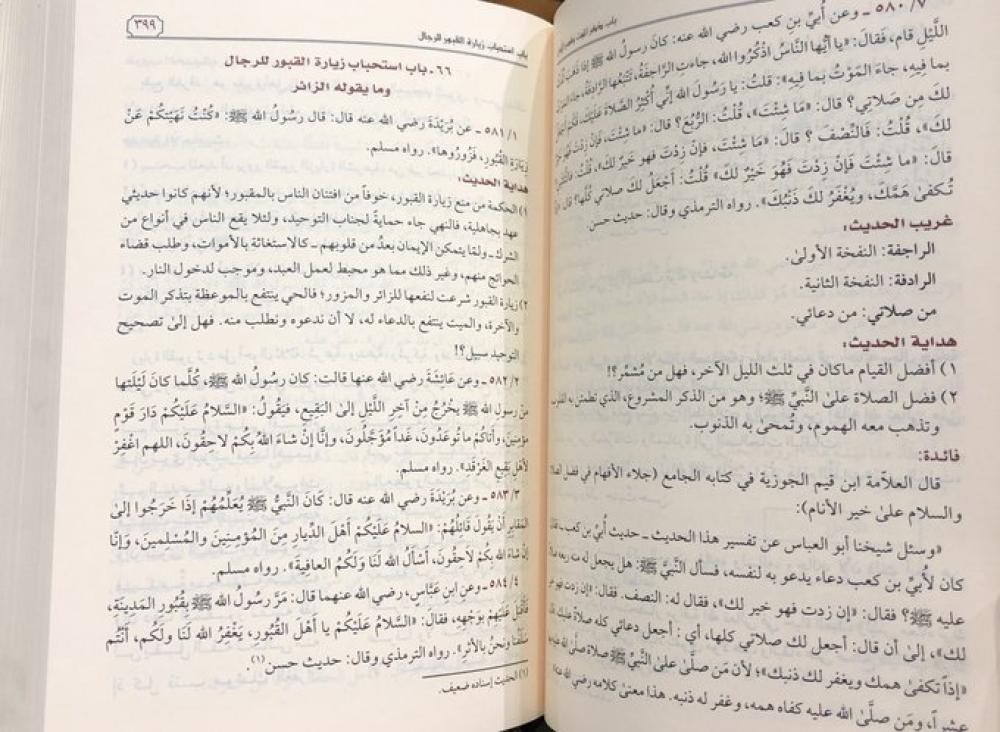 باب
٥٨٠/٧ ـ وعن أُبيِّ بنِ كعب رضي الله عنه: كانَ رسولُ الله ﷺ إذا ذهبَ
اللَّيْلِ قام، فقالَ: «يا أيُّها النَّاسُ اذْكُرُوا الله، جاءتِ الرَّاجِفَةُ، تَتْبَعُها الرَّادِفَةُ، جاءَ
بما فيهِ، جاءَ المَوْتُ بما فِيهِ» قلتُ: يا رَسُولَ الله إنِّي أُكْثِرُ الصَّلاةَ عَلَيْكَ، فَكَمْ
لكَ مِن صَلاتي؟ قال: «مَا شِئْتَ»، قُلْتُ: الرُّبُعَ؟ قالَ: «ما شِئْتَ، فَإنْ زِدْتَ فَهُوَ
لكَ»، قُلْتُ: فَالنِّصْفَ؟ قالَ: «مَا شِئْتَ، فَإنْ زِدْتَ فهو خيرٌ لكَ»،
قالَ: «ما شِئْتَ فَإنْ زِدْتَ فَهُوَ خَيْرٌ لكَ» قُلْتُ: أجْعَلُ لكَ صلاتي كُلَّها؟ قالَ:
تُكفىٰ هَمَّكَ، ويُغْفَرُ لكَ ذَنْبُكَ». رواه الترمذي وقال: حديث حسن.
غريب الحديث:
الراجفة: النفخة الأولىٰ.
الرادفة: النفخة الثانية.
من صلاتي: من دعائي.
هداية الحديث:
١) أفضل القيام ماكان في ثلث الليل الآخر، فهل من مُشمِّر؟!
٢) فضل الصلاة علىٰ النَّبيِّ ﷺ؛ وهو من الذكر المشروع، الذي تطمئن به
وتذهب معه الهموم، وتُمحىٰ به الذنوب.
فائدة:
قال العلامة ابن قيم الجوزية في كتابه الجامع (جلاء الأفهام في فضل
والسلام علىٰ خير الأنام):
«وسئل شيخنا أبو العباس عن تفسير هذا الحديث ـ حديث أُبيِّ بن كعب ـ
كان لأُبيِّ بن كعب دعاء يدعو به لنفسه، فسأل النَّبيَّ ﷺ: هل يجعل له منه
عليه ﷺ؟ فقال: «إن زدت فهو خير لك»، فقال له: النصف. فقال: «إن زدت فهو خير
لك»، إلىٰ أن قال: أجعل لك صلاتي كلها، أي: أجعل دعائي كله صلاة عليك،
«إذاً تكفىٰ همك ويغفر لك ذنبك»؛ لأن مَن صلَّىٰ علىٰ النَّبيِّ ﷺ صلاة صلَّىٰ الله
عشراً، ومَن صلَّىٰ الله عليه كفاه همه، وغفر له ذنبه. هذا معنىٰ كلامه رضي الله
باب استحباب زيارة القبور للرجال
٣٩٩
٦٦ـ باب استحباب زيارة القبور للرجال
وما يقوله الزائر
٥٨١/١ ـ عن بُرَيْدَةَ رضي الله عنه قال: قال رَسُولُ الله ﷺ: «كُنْتُ نَهَيْتُكُمْ عَنْ
زِيَارَةِ القُبُورِ، فَزُورُوها». رواه مسلم.
هداية الحديث:
١) الحكمة من منع زيارة القبور، خوفاً من افتتان الناس بالمقبور؛ لأنهم كانوا حديثي
عهد بجاهلية، فالنهي جاء حمايةً لجناب التوحيد، ولئلا يقع الناس في أنواع من
الشرك ـ ولمّا يتمكن الإيمان بعدُ من قلوبهم ـ كالاستغاثة بالأموات، وطلب قضاء
الحوائج منهم، وغير ذلك مما هو محبط لعمل العبد، وموجب لدخول النار.
٢) زيارة القبور شرعت لنفعها للزائر والمزور؛ فالحي ينتفع بالموعظة بتذكر الموت
والآخرة، والميت ينتفع بالدعاء له، لا أن ندعوه ونطلب منه. فهل إلىٰ تصحيح
التوحيد سبيل؟!
٥٨٢/٢ ـ وعن عَائِشَةَ رضي الله عنها قالت: كان رسُولُ الله ﷺ، كُلَّما كانَ لَيْلَتها
منْ رسول الله ﷺ يخْرُجُ مِنْ آخِرِ اللَّيْلِ إلىٰ البَقِيعِ، فَيَقُولُ: «السَّلامُ عَلَيْكُمْ دَارَ قَوْمٍ
مؤمِنينَ، وأَتَاكُمْ ما تُوعَدُونَ، غَداً مُؤَجَّلُونَ، وإنَّا إنْ شَاءَ اللهُ بِكُمْ لاحِقُونَ، اللهم اغْفِرْ
لأهْلِ بَقِيعِ الغَرْقَدِ». رواه مسلم.
٥٨٣/٣ ـ وعن بُرَيْدَةَ رضي الله عنه قال: كَانَ النَّبيُّ ﷺ يُعَلِّمُهُمْ إذَا خَرَجُوا إلىٰ
المَقَابِرِ أنْ يَقُولَ قَائِلُهُمْ: «السلامُ عَلَيْكُمْ أهْلَ الدِّيارِ مِنَ المُؤْمِنِينَ وَالمُسْلِمينَ، وَإنَّا
إنْ شَاءَ الله بِكُمْ لاَحِقُونَ، أسْأَلُ الله لَنَا وَلَكُمُ العافِيةَ». رواه مسلم.
٥٨٤/٤ ـ وعن ابنِ عَبَّاسٍ، رضي الله عنهما قال: مَرَّ رَسُولُ الله ﷺ بِقُبُورِ المَدِينَةِ،
فَأَقْبَلَ عَلَيْهِمْ بوَجْهِهِ، فقالَ: «السَّلامُ عَلَيْكُمْ يا أهْلَ القُبُورِ، يَغْفِرُ الله لَنا ولَكُم، أنْتُم
سَلَفُنا ونحنُ بالأثَرِ». رواه الترمذي وقال: حديث حسن(١).
(١) الحديث إسناده ضعيف.